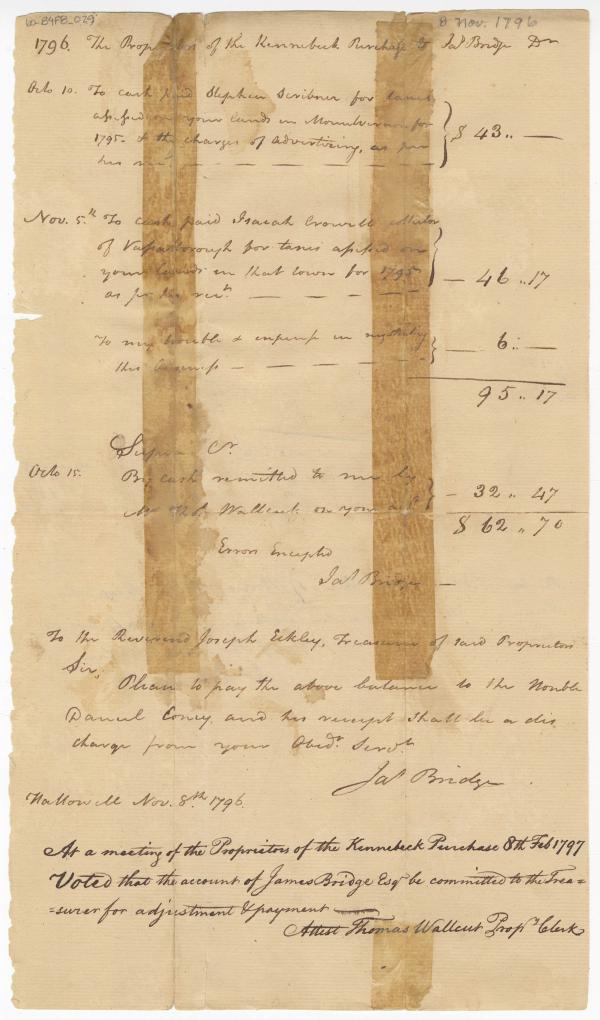 8 Nov. 1796
1796. The Proprietors of the Kennebeck Purchase to Jas Bridge Dr
Octo 10. To cash paid Stephen Scribner for taxes
assessed on your lands in Mountvernon for
1795 & the charges of Advertizing, as per
his rect — — — — — $ 43.. —
Nov. 5.th To cash paid Isaiah Crowell collector
of Vassalborough for taxes assessed on
your lands in that town for 1795
as per his rect. — — — — 46 .. 17
To my trouble & expense in negotiating
this business — — — — 6.. —
95 .. 17
Supra Cr.
Octo 15. By cash remitted to me by
Mr Thos Wallcut on your acct — 32 .. 47
$ 62 .. 70
Errors Excepted
Jas Bridge —
To the Reverend Joseph Eckley, Treasurer of said Proprietors
Sir,
Please to pay the above balance to the Honble
Daniel Coney, and his receipt shall be a dis
charge from your Obedt. Servt.
Jas Bridge
Hallowell Nov. 8.th 1796.
At a meeting of the Proprietors of the Kennebeck Purchase 8th Feb 1797
Voted that the account of James Bridge Esqr be committed to the Trea=
=surer for adjustment & payment
Attest Thomas Wallcut Proprs Clerk